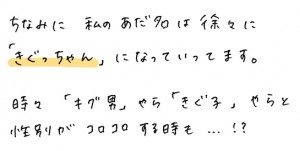 ちなみに 私のあだ名は徐々に
「きぐっちゃん」になっていってます。
時々 「キグ男」やら「きぐ子」やらと
性別がコロコロする時も…!?